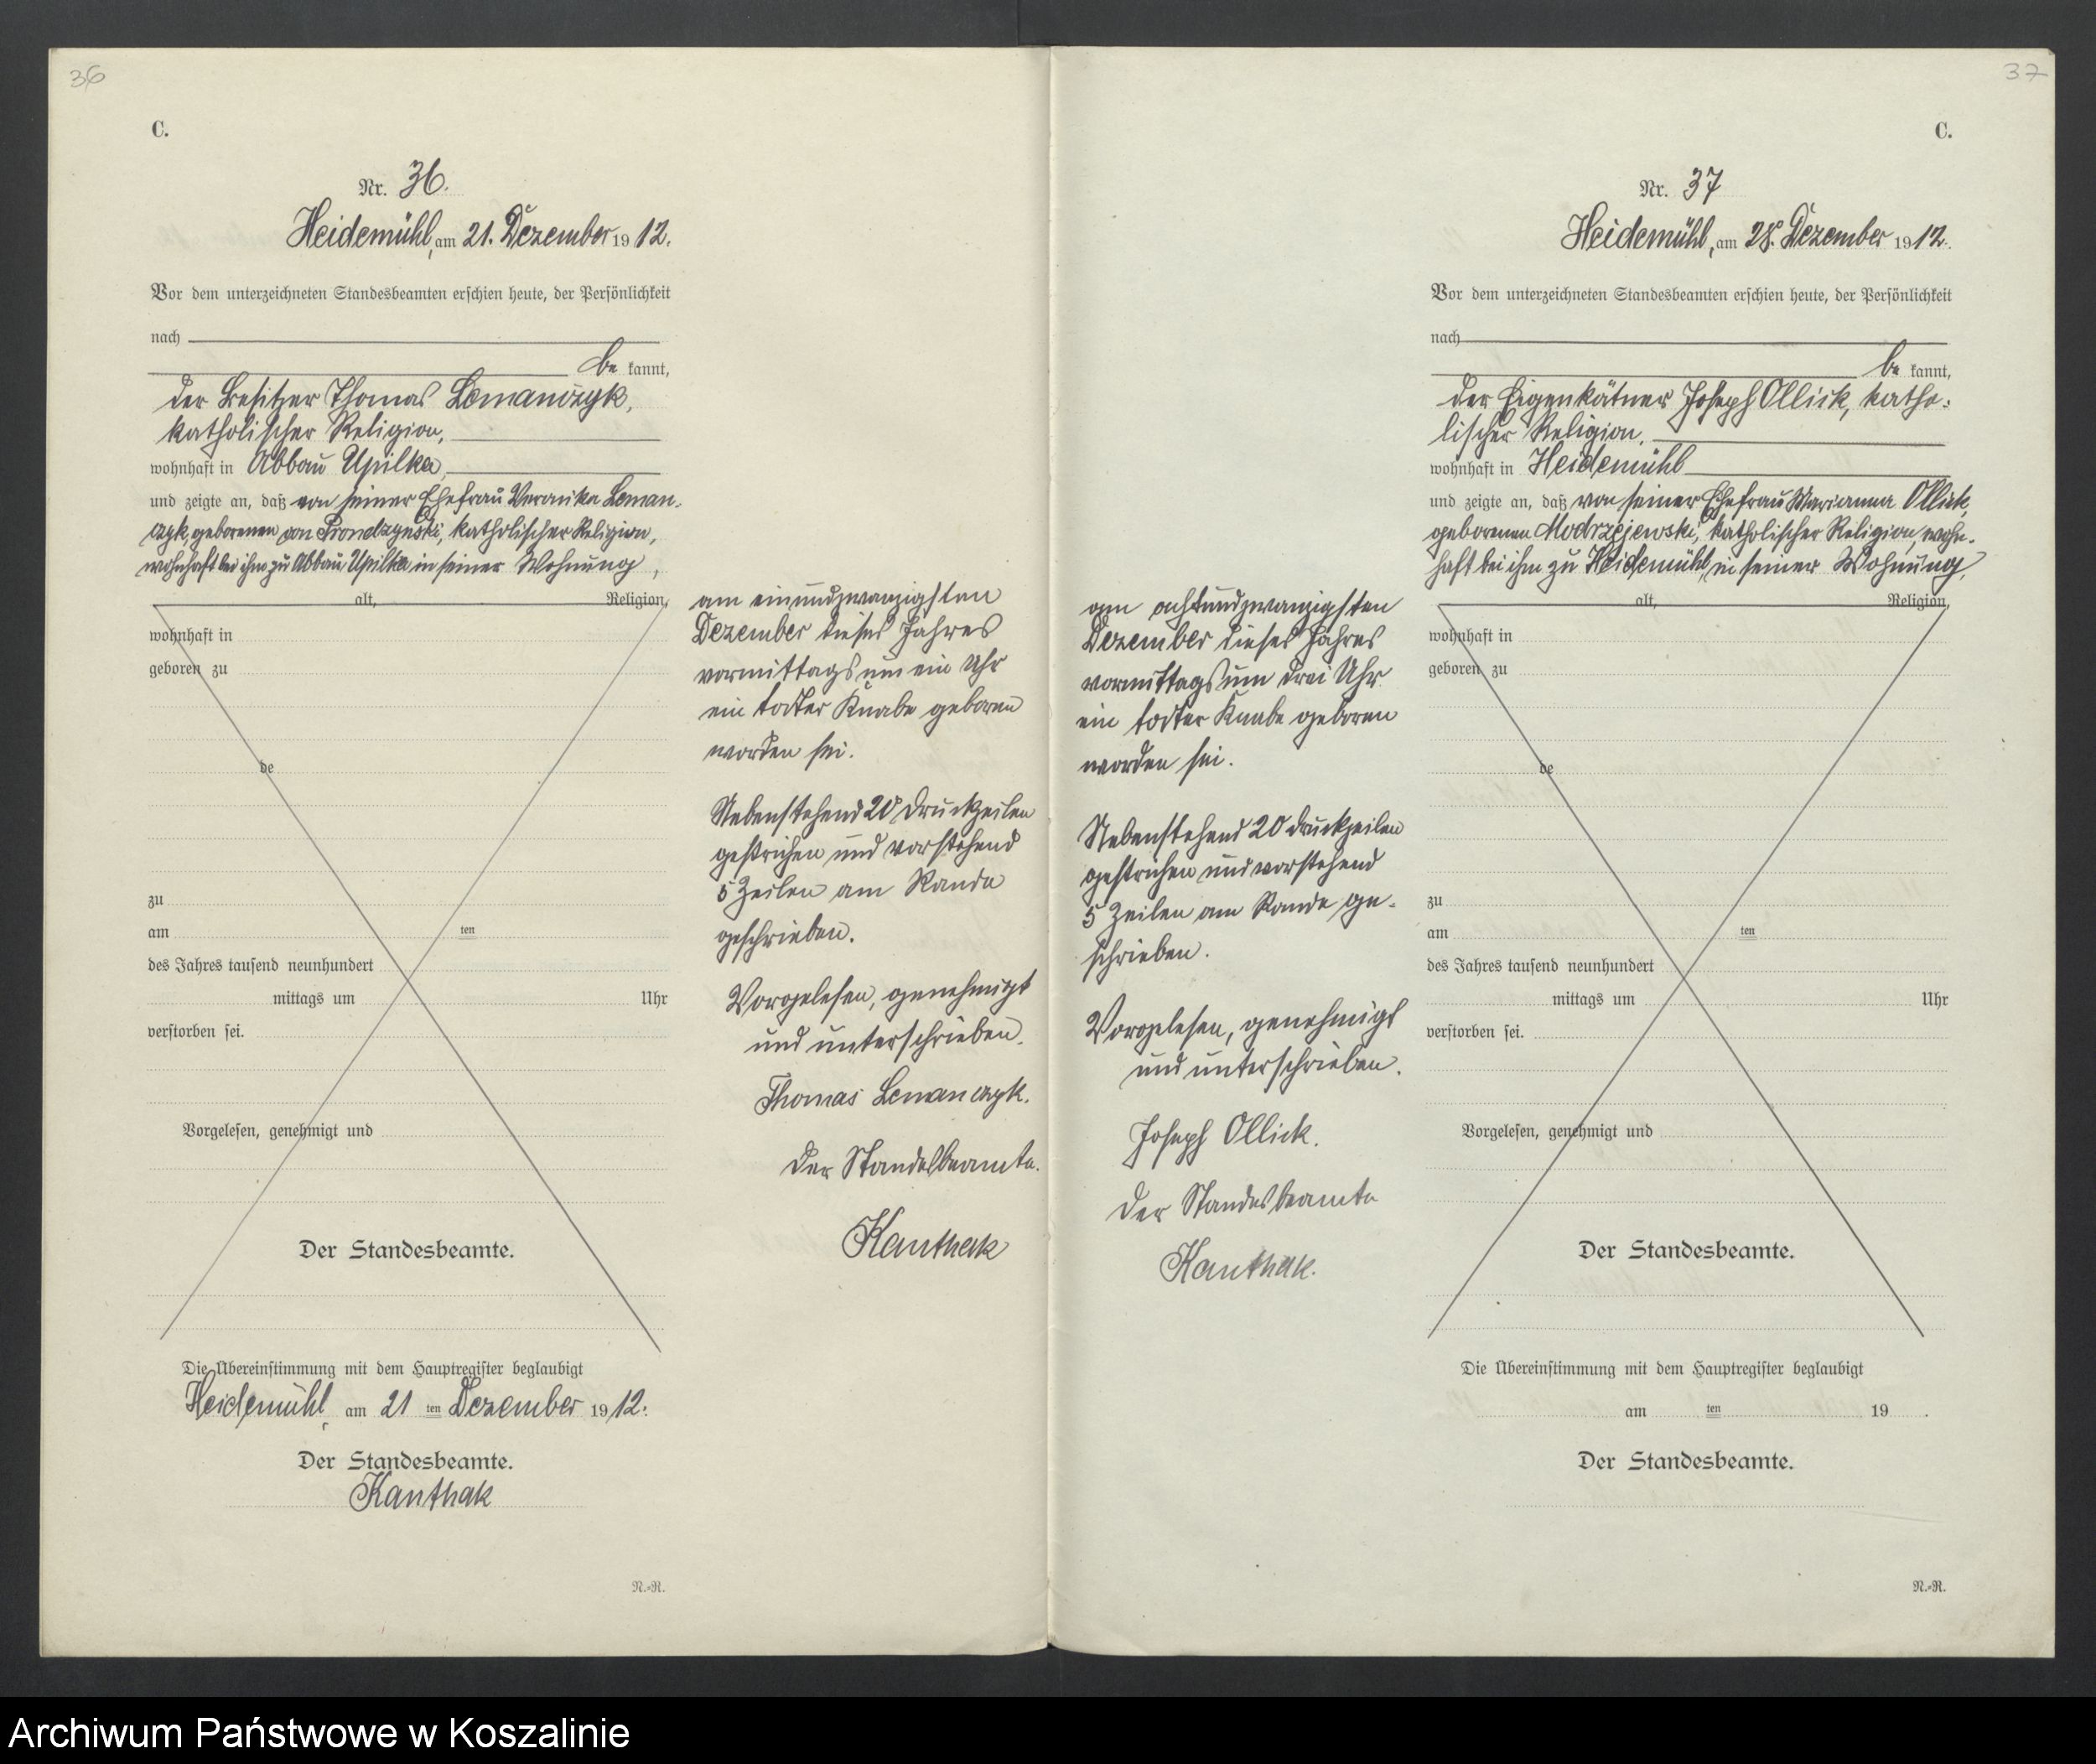 36
C.
Nr. 36.
Heidemühl, am 21. Dezember 1912.
Vor dem unterzeichneten Standesbeamten erschien heute, der Persönlichkeit
nach
be kannt,
der Besitzer Thomas Lemanczyk,
katholischer Religion,
wohnhaft in Abbau Upilka,
und zeigte an, daß von seiner Ehefrau Veronika Leman-
czyk, geborenen von Prondzynski, katholischer Religion,
wohnhaft bei ihm zu Abbau Upilka in seiner Wohnung,
alt, Religion,
wohnhaft in
geboren zu
de
zu
am ten
des Jahres tausend neunhundert
mittags um Uhr
verstorben sei.
Vorgelesen, genehmigt und
Der Standesbeamte.
Die Übereinstimmung mit dem Hauptregister beglaubigt
Heidemühl, am 21 ten Dezember 1912.
Der Standesbeamte.
Kanthak
N.-R.
am einundzwanzigsten
Dezember dieses Jahres
vormittags um ein Uhr
ein todter Knabe geboren
worden sei.
Nebenstehend 20 Druckzeilen
gestrichen und vorstehend
5 Zeilen am Rande
geschrieben.
Vorgelesen, genehmigt
und unterschrieben.
Thomas Lemanczyk.
Der Standesbeamte.
Kanthak
37
C.
Nr. 37
Heidemühl, am 28. Dezember 1912.
Vor dem unterzeichneten Standesbeamten erschien heute, der Persönlichkeit
nach
be kannt,
der Eigenkätner Joseph Ollick, katho-
lischer Religion,
wohnhaft in Heidemühl
und zeigte an, daß von seiner Ehefrau Marianna Ollick,
geborenen Modrzejewski, katholischer Religion, wohn-
haft bei ihm zu Heidemühl, in seiner Wohnung,
alt, Religion,
wohnhaft in
geboren zu
de
zu
am ten
des Jahres tausend neunhundert
mittags um Uhr
verstorben sei.
Vorgelesen, genehmigt und
Der Standesbeamte.
Die Übereinstimmung mit dem Hauptregister beglaubigt
am ten 19 .
Der Standesbeamte.
N.-R.
am achtundzwanzigsten
Dezember dieses Jahres
vormittags um drei Uhr
ein todter Knabe geboren
worden sei.
Nebenstehend 20 Druckzeilen
gestrichen und vorstehend
5 Zeilen am Rande ge-
schrieben.
Vorgelesen, genehmigt
und unterschrieben.
Joseph Ollick.
Der Standesbeamte
Kanthak.
Archiwum Państwowe w Koszalinie